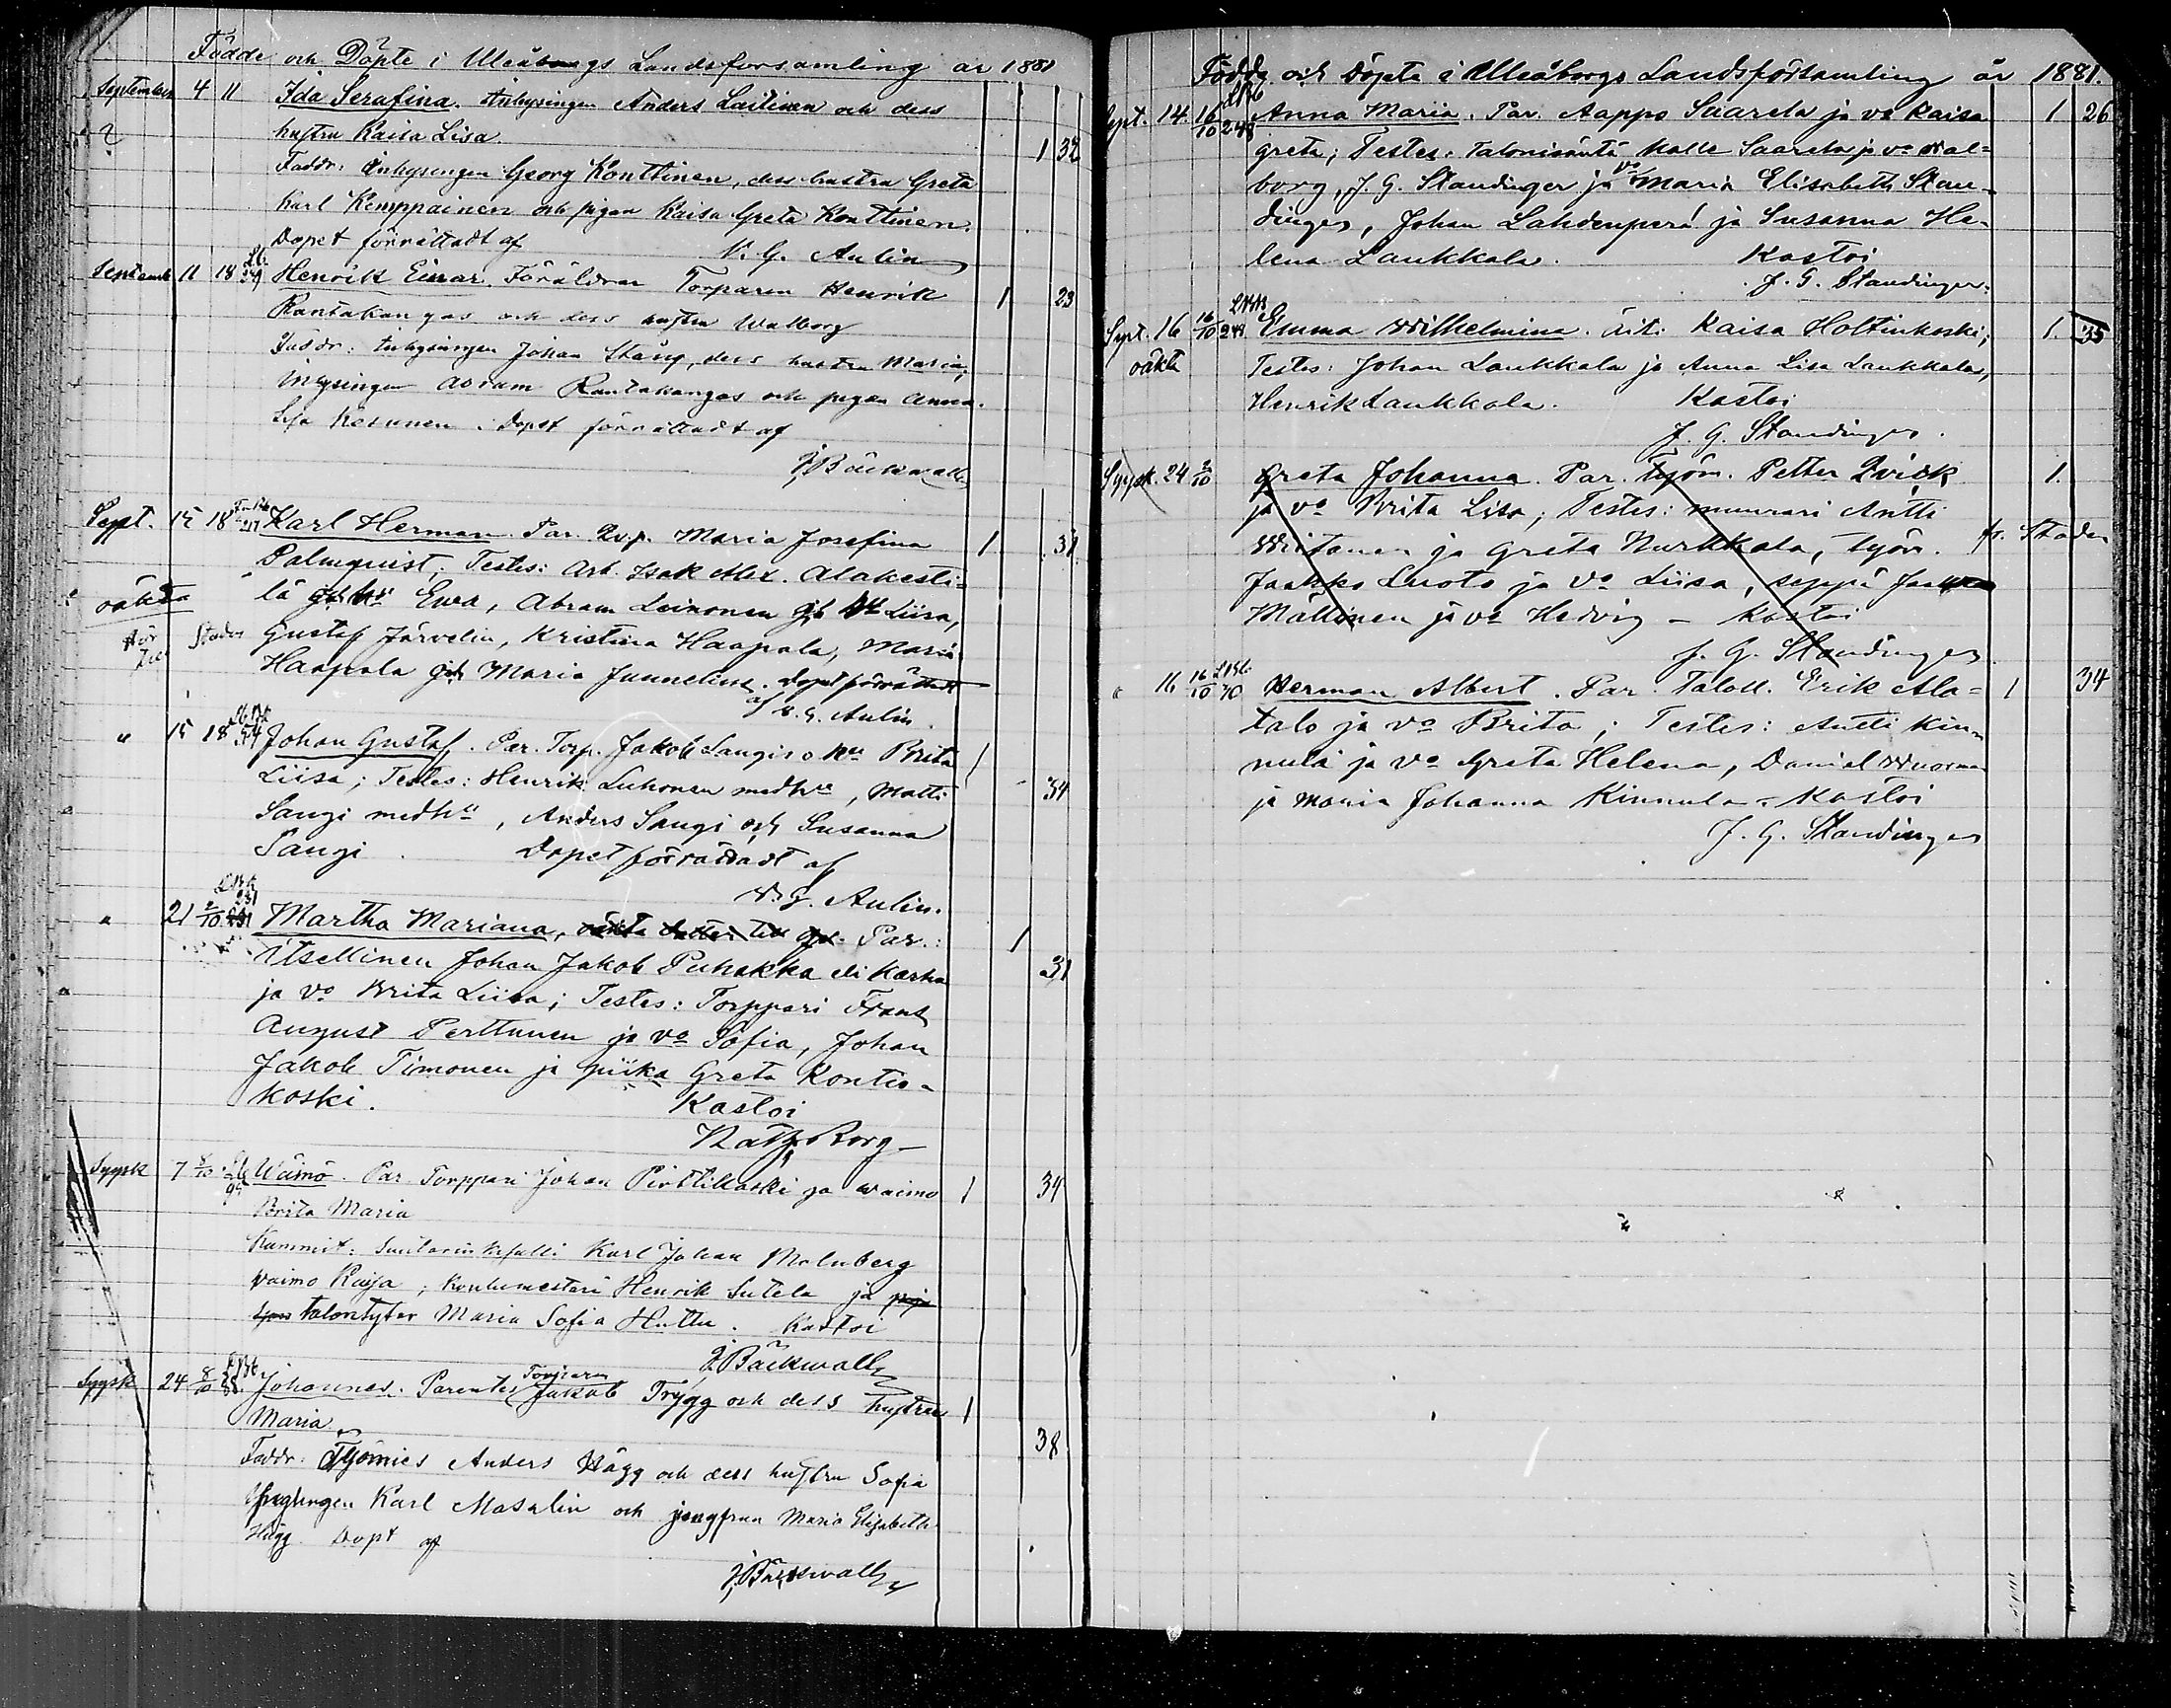 Födde och Döpte i Uleåborgs Landsforsamling år 1881
September 4 11 Ida Serafina. Inhysingen Anders Laitinen och dess
hustru Kaisa Lisa. 1 32
Faddr: Inhysingen Georg Konttinen, dess hustru Greta
Karl Kemppainen och pigan Kaisa Greta Konttinen.
Dopet förrättadt af V. G. Aulin
September 11 18 Henrik Einar. Föräldrar Torparen Henrik 1 23
Rantakangas och dess hustru Walborg
Faddr: Inhysingen Johan Stång, dess hustru Maria,
Inhysingen Abram Rantakangas och pigan Anna
Lisa Kesunen. Dopet förrättadt af
J. Bäckwall
Sept. 15 18 217 Karl Herman. Par. Qvp. Maria Josefina 1 31
Palmquist; Testes: Arb. Isak Alex. Alakesti-
oäkta lä Ewa, Abram Leinonen Liisa,
Staden Gustaf Järvelin, Kristina Haapala, Maria
Haapala Maria Junnelius. Dopet förrättadt
af V. G. Aulin.
" 15 18 54 Johan Gustaf. Par. Torp. Jakob Sangi o hu Brita 1
Liisa; Testes: Henrik Luhonen med hu, Matti 34
Sangi med hu, Anders Sangi och Susanna
Sangi. Dopet förrättadt af
V. G. Aulin.
" 21 2/10 231 Martha Mariana, oäkta dotter till Par.: 1
Itsellinen Johan Jakob Puhakka eli Karhu 31
ja vo Brita Liisa; Testes: Torppari Frans
August Perttunen ja vo Sofia, Johan
Jakob Timonen ja piika Greta Kontio-
koski. Kastoi
Borg
Syysk 7 8/10 Wäinö. Par Torppari Johan Pirttikoski ja waimo 1 34
Brita Maria
Kummit: Suutarinkisälli Karl Johan Malmberg
vaimo Kaisa; Koulumestari Henrik Sutela ja
talontytär Maria Sofia Huttu. Kastoi
J. Bäckwall
Syysk 24 8/10 88. Johannes. Parentes Torparen Jakob Trygg och dess hustru 1
Maria 38
Faddr. Työmies Anders Hägg och dess hustru Sofia
Ynglingen Karl Masalin och jungfrun Maria Elisabeth
Hägg. Döpt af
J. Bäckwall
Födda och Döpta i Uleåborgs Landsförsamling år 1881.
Sept. 14. 16/10 248 Anna Maria. Par. Aappo Saarela ja vo Kaisa 1 26
Greta; Testes: Talonisäntä Kalle Saarela ja vo Wal-
borg, J. G. Standinger ja vo Maria Elisabeth Stan-
dinger, Johan Lahdenperä ja Susanna He-
lena Laukkala. Kastoi
J. G. Standinger.
Sept. 16 16/10 248. Emma Wilhelmina. Äiti Kaisa Holtinkoski; 1. 35
oäkta Testes: Johan Laukkala ja Anna Lisa Laukkala,
Henrik Laukkala. Kastoi
J. G. Standinger.
Syysk. 24 2/10 Greta Johanna. Par. Työm. Petter Qvick 1.
ja vo Brita Lisa; Testes: muurari Antti
Wiitanen ja Greta Nurkkala, työm. fr. Staden
Jaakko Luoto ja vo Liisa, seppä
Mällinen ja vo Hedvig – Kastoi
J. G. Standinger
" 16 16/10 70 Herman Albert. Par. Taloll. Erik Ala- 1 34
talo ja vo Brita; Testes: Antti Kin-
nula ja vo Greta Helena, Daniel Wuorma
ja Maria Johanna Kinnula. Kastoi
J. G. Standinger